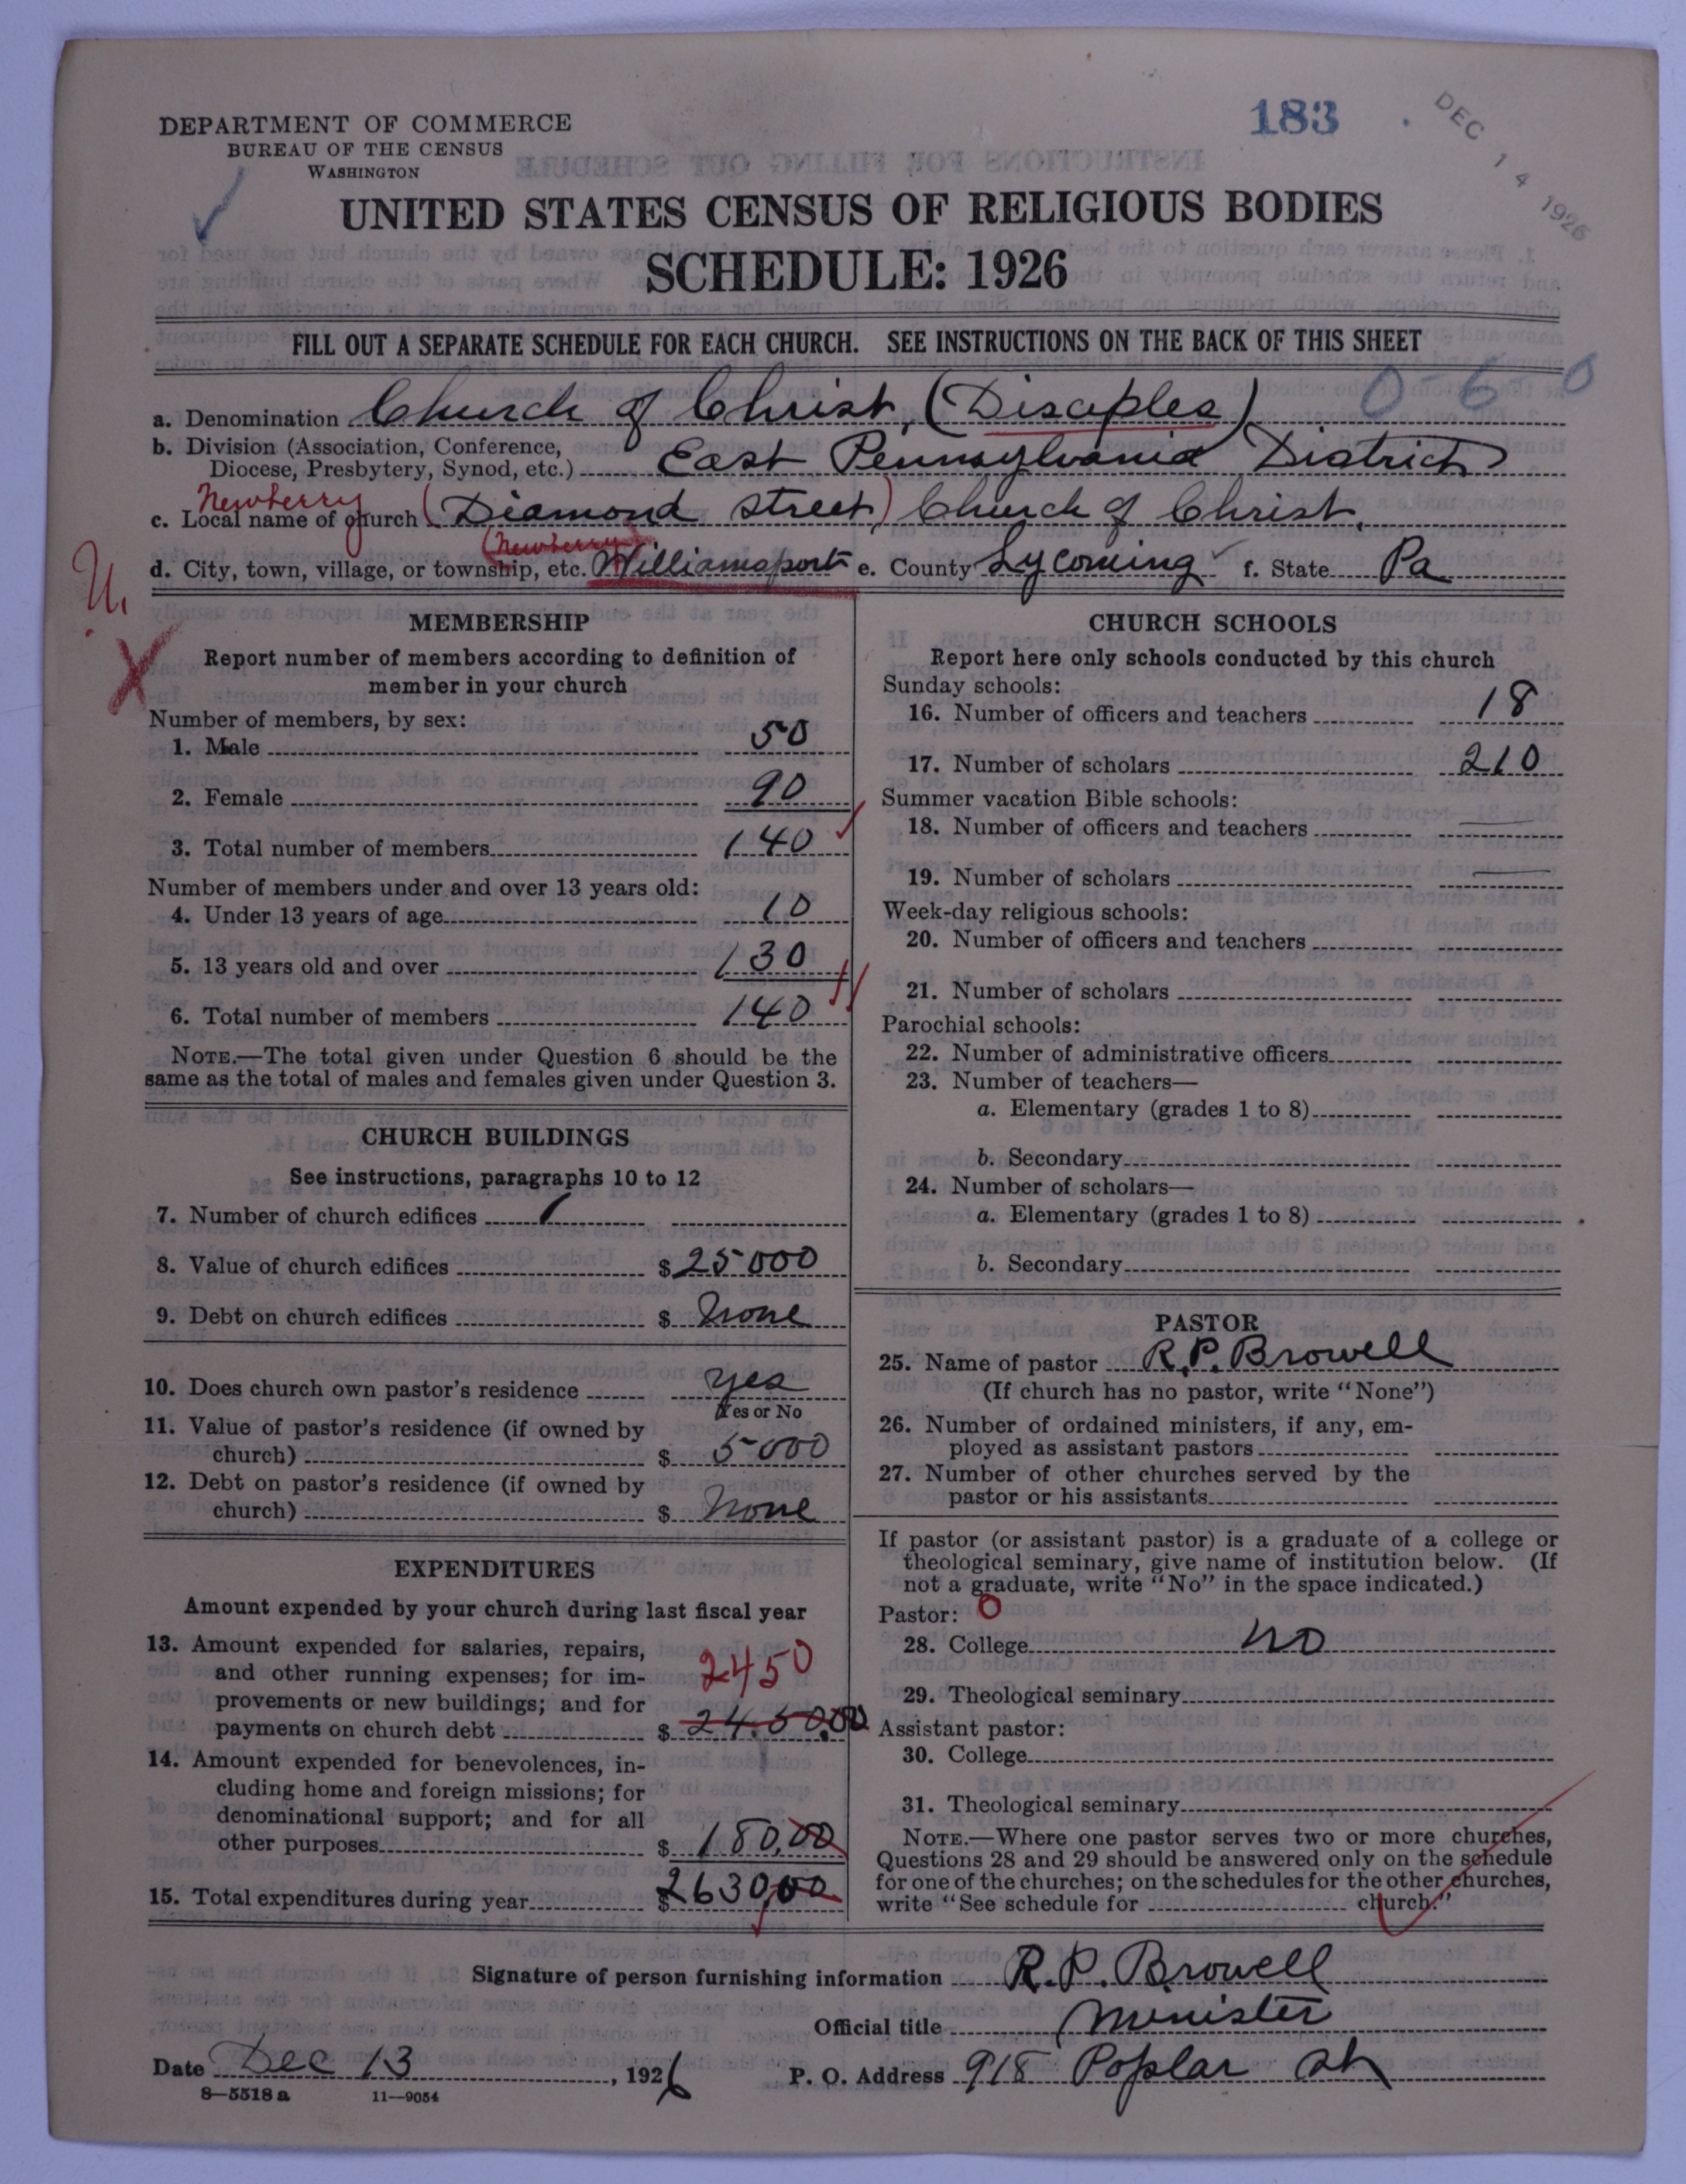 183
DEC 14 1926
DEPARTMENT OF COMMERCE
BUREAU OF THE CENSUS
WASHINGTON
UNITED STATES CENSUS OF RELIGIOUS BODIES
SCHEDULE: 1926
FILL OUT A SEPARATE SCHEDULE FOR EACH CHURCH. SEE INSTRUCTIONS ON THE BACK OF THIS SHEET
0-6-0
a. Denomination Church of Christ, (Disciples)
b. Division (Association, Conference, Diocese, Presbytery, Synod, etc.) East Pennsylvania District
Newberry
c. Local name of church (Diamond Street) Church of Christ.
(Newberry)
d. City, town, village, or township, etc. Williamsport e. County Lycoming f. State Pa
U.
X
MEMBERSHIP
Report number of members according to definition of
member in your church
Number of members, by sex:
1. Male 50
2. Female 90
3. Total number of members 140
Number of members under and over 13 years old:
4. Under 13 years of age 10
5. 13 years old and over 130
6. Total number of members 140
NOTE.—The total given under Question 6 should be the
same as the total of males and females given under Question 3.
CHURCH BUILDINGS
See instructions, paragraphs 10 to 12
7. Number of church edifices 1
8. Value of church edifices $ 25000
9. Debt on church edifices $ None
10. Does church own pastor's residence yes
Yes or No
11. Value of pastor's residence (if owned by
church) $ 5000
12. Debt on pastor's residence (if owned by
church) $ None
EXPENDITURES
Amount expended by your church during last fiscal year
13. Amount expended for salaries, repairs,
and other running expenses; for im-
provements or new buildings; and for
2450
payments on church debt $ 2450.00
14. Amount expended for benevolences, in-
cluding home and foreign missions; for
denominational support; and for all
other purposes $ 180,00
15. Total expenditures during year $ 2630,00
CHURCH SCHOOLS
Report here only schools conducted by this church
Sunday schools:
16. Number of officers and teachers 18
17. Number of scholars 210
Summer vacation Bible schools:
18. Number of officers and teachers —
19. Number of scholars —
Week-day religious schools:
20. Number of officers and teachers
21. Number of scholars
Parochial schools:
22. Number of administrative officers
23. Number of teachers—
a. Elementary (grades 1 to 8)
b. Secondary
24. Number of scholars—
a. Elementary (grades 1 to 8)
b. Secondary
PASTOR
25. Name of pastor R.P. Browell
(If church has no pastor, write "None")
26. Number of ordained ministers, if any, em-
ployed as assistant pastors
27. Number of other churches served by the
pastor or his assistants
If pastor (or assistant pastor) is a graduate of a college or
theological seminary, give name of institution below. (If
not a graduate, write "No" in the space indicated.)
Pastor: 0
28. College No
29. Theological seminary
Assistant pastor:
30. College
31. Theological seminary
NOTE.—Where one pastor serves two or more churches,
Questions 28 and 29 should be answered only on the schedule
for one of the churches; on the schedules for the other churches,
write "See schedule for church."
Signature of person furnishing information R.P. Browell
Official title Minister
Date Dec 13, 1926 P. O. Address 918 Poplar St
8—5518 a 11—9054